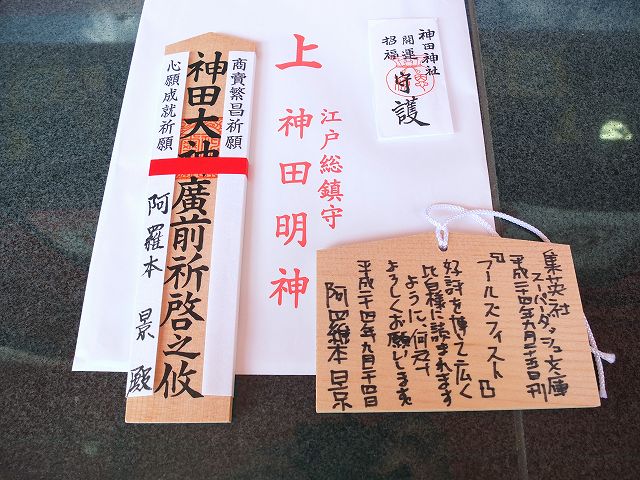 商賣繁昌祈願
神田大神廣前祈啓之攸
心願成就祈願
阿羅本 景 殿
上
江戸総鎮守
神田明神
神田神社
開運
招福
守護
集英社
スーパーダッシュ文庫
平成二十四年九月二十五日刊
『フールズフィスト』
好評を博して広く
皆様に読まれます
ように、何卒
よろしくお願いします
平成二十四年九月二十四日
阿羅本 景